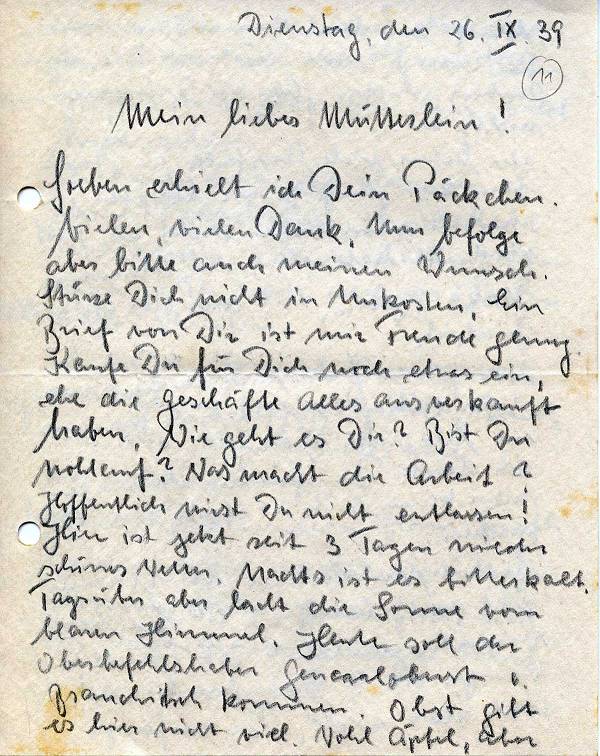 Dienstag, den 26. IX. 39
11
Mein liebes Mütterlein!
Soeben erhielt ich Dein Päckchen.
Vielen, vielen Dank. Nun befolge
aber bitte auch meinen Wunsch.
Stürze Dich nicht in Unkosten, Ein
Brief von Dir ist mir Freude genug.
Kaufe Du für Dich noch etwas ein,
ehe die Geschäfte Alles ausverkauft
haben. Wie geht es Dir? Bist Du
wohlauf? Was macht die Arbeit?
Hoffentlich wirst Du nicht entlassen!
Hier ist jetzt seit 3 Tagen wieder
schönes Wetter. Nachts ist es bitterkalt.
Tagsüber aber lacht die Sonne vom
blauen Himmel. Heute soll der
Oberbefehlshaber Generaloberst v.
Brauchitsch kommen. Obst gibt
es hier nicht viel. Wohl Äpfel, aber